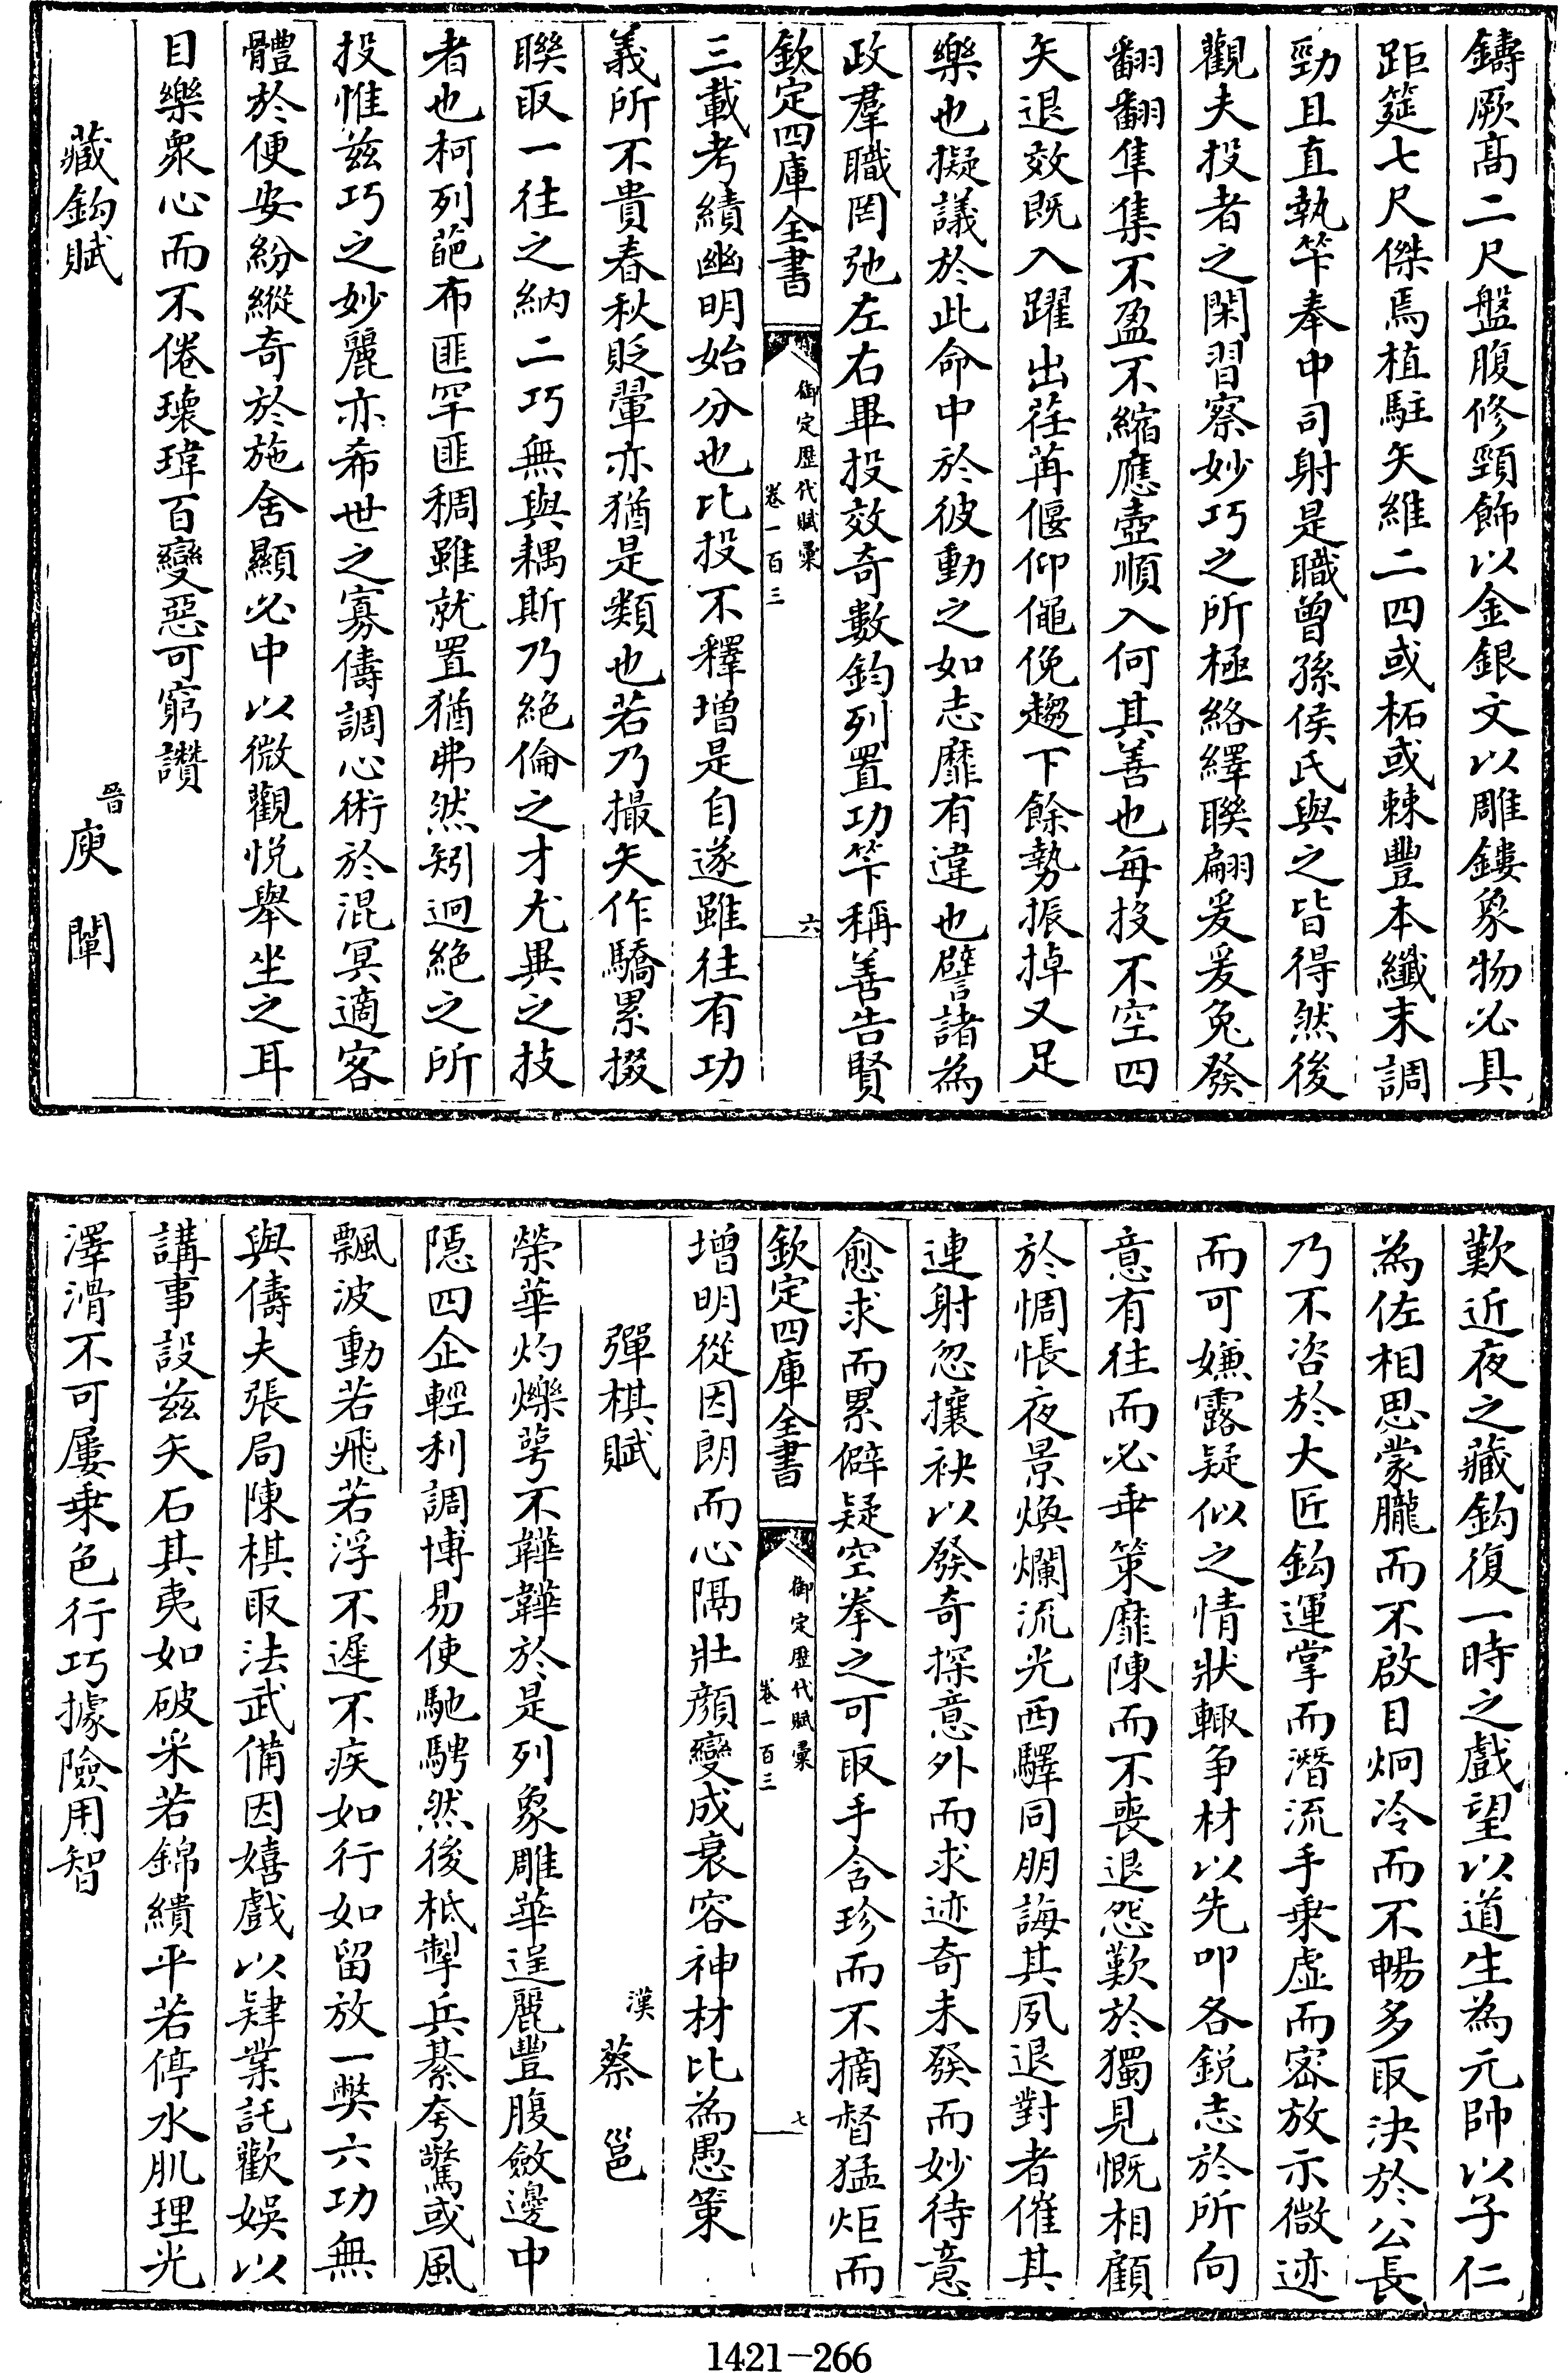 鑄厥髙二尺盤腹修頸飾以金銀文以雕鏤象物必具
距筵七尺傑焉植駐矢維二四或柘或棘豐本纖末調
勁且直執筭奉中司射是職曾孫侯氏與之皆得然後
觀夫投者之閑習察妙巧之所極絡繹聨翩爰爰兔發
翻翻隼集不盈不縮應壺順入何其善也每投不空四
矢退效既入躍出荏苒偃仰僶俛趨下餘勢振掉又足
樂也擬議於此命中於彼動之如志靡有違也譬諸為
政羣職罔弛左右畢投效奇數鈞列置功筭稱善告賢
欽定四庫全書
御定歴代賦彙
卷一百三
六
三載考績幽明始分也比投不釋増是自遂雖往有功
義所不貴春秋貶翬亦猶是類也若乃撮矢作驕累掇
聨取一往之納二巧無與耦斯乃絶倫之才尤異之技
者也柯列葩布匪罕匪稠雖就置猶弗然矧迥絶之所
投惟兹巧之妙麗亦希世之寡儔調心術於混冥適容
體於便安紛縱奇於施舍顯必中以微觀悅舉坐之耳
目樂衆心而不倦瓌瑋百變惡可窮讚
藏鈎賦
晉
庾闡
歎近夜之藏鈎復一時之戲望以道生為元帥以子仁
為佐相思蒙朧而不啟目炯冷而不暢多取決於公長
乃不咨於大匠鈎運掌而潛流手乗虚而密放示微迹
而可嫌露疑似之情狀輙争材以先叩各鋭志於所向
意有往而必乖策靡陳而不喪退怨歎於獨見慨相顧
於惆悵夜景煥爛流光西驛同朋誨其夙退對者催其
連射忽攘袂以發奇探意外而求迹奇未發而妙待意
愈求而累僻疑空拳之可取手含珍而不摘督猛炬而
欽定四庫全書
御定歴代賦彙
卷一百三
七
増明從因朗而心隔壯顔變成衰容神材比為愚策
彈棋賦
漢
蔡邕
榮華灼爍萼不韡韡於是列象雕華逞麗豐腹斂邊中
隱四企輕利調博易使馳騁然後柢掣兵棊夸驚或風
飄波動若飛若浮不遲不疾如行如留放一獘六功無
與儔夫張局陳棋取法武備因嬉戲以肄業託歡娛以
講事設兹矢石其夷如破采若錦繢平若停水肌理光
澤滑不可屢乗色行巧據險用智
1421—266